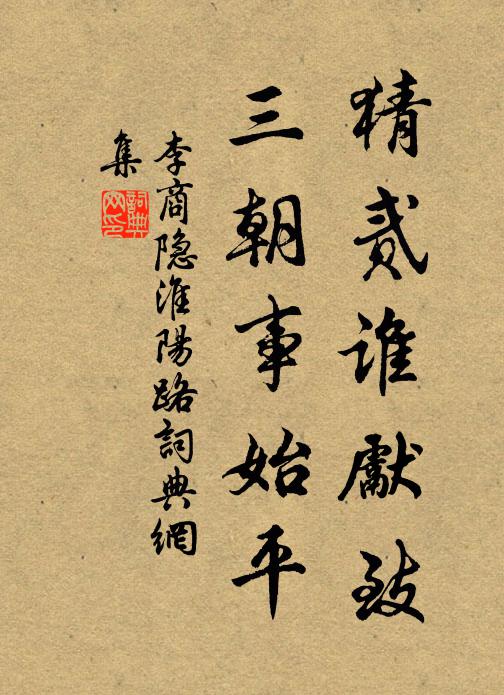 猜貳誰獻致
三朝事始平
李商隐淮陽路詞典網
集
詞典
网印